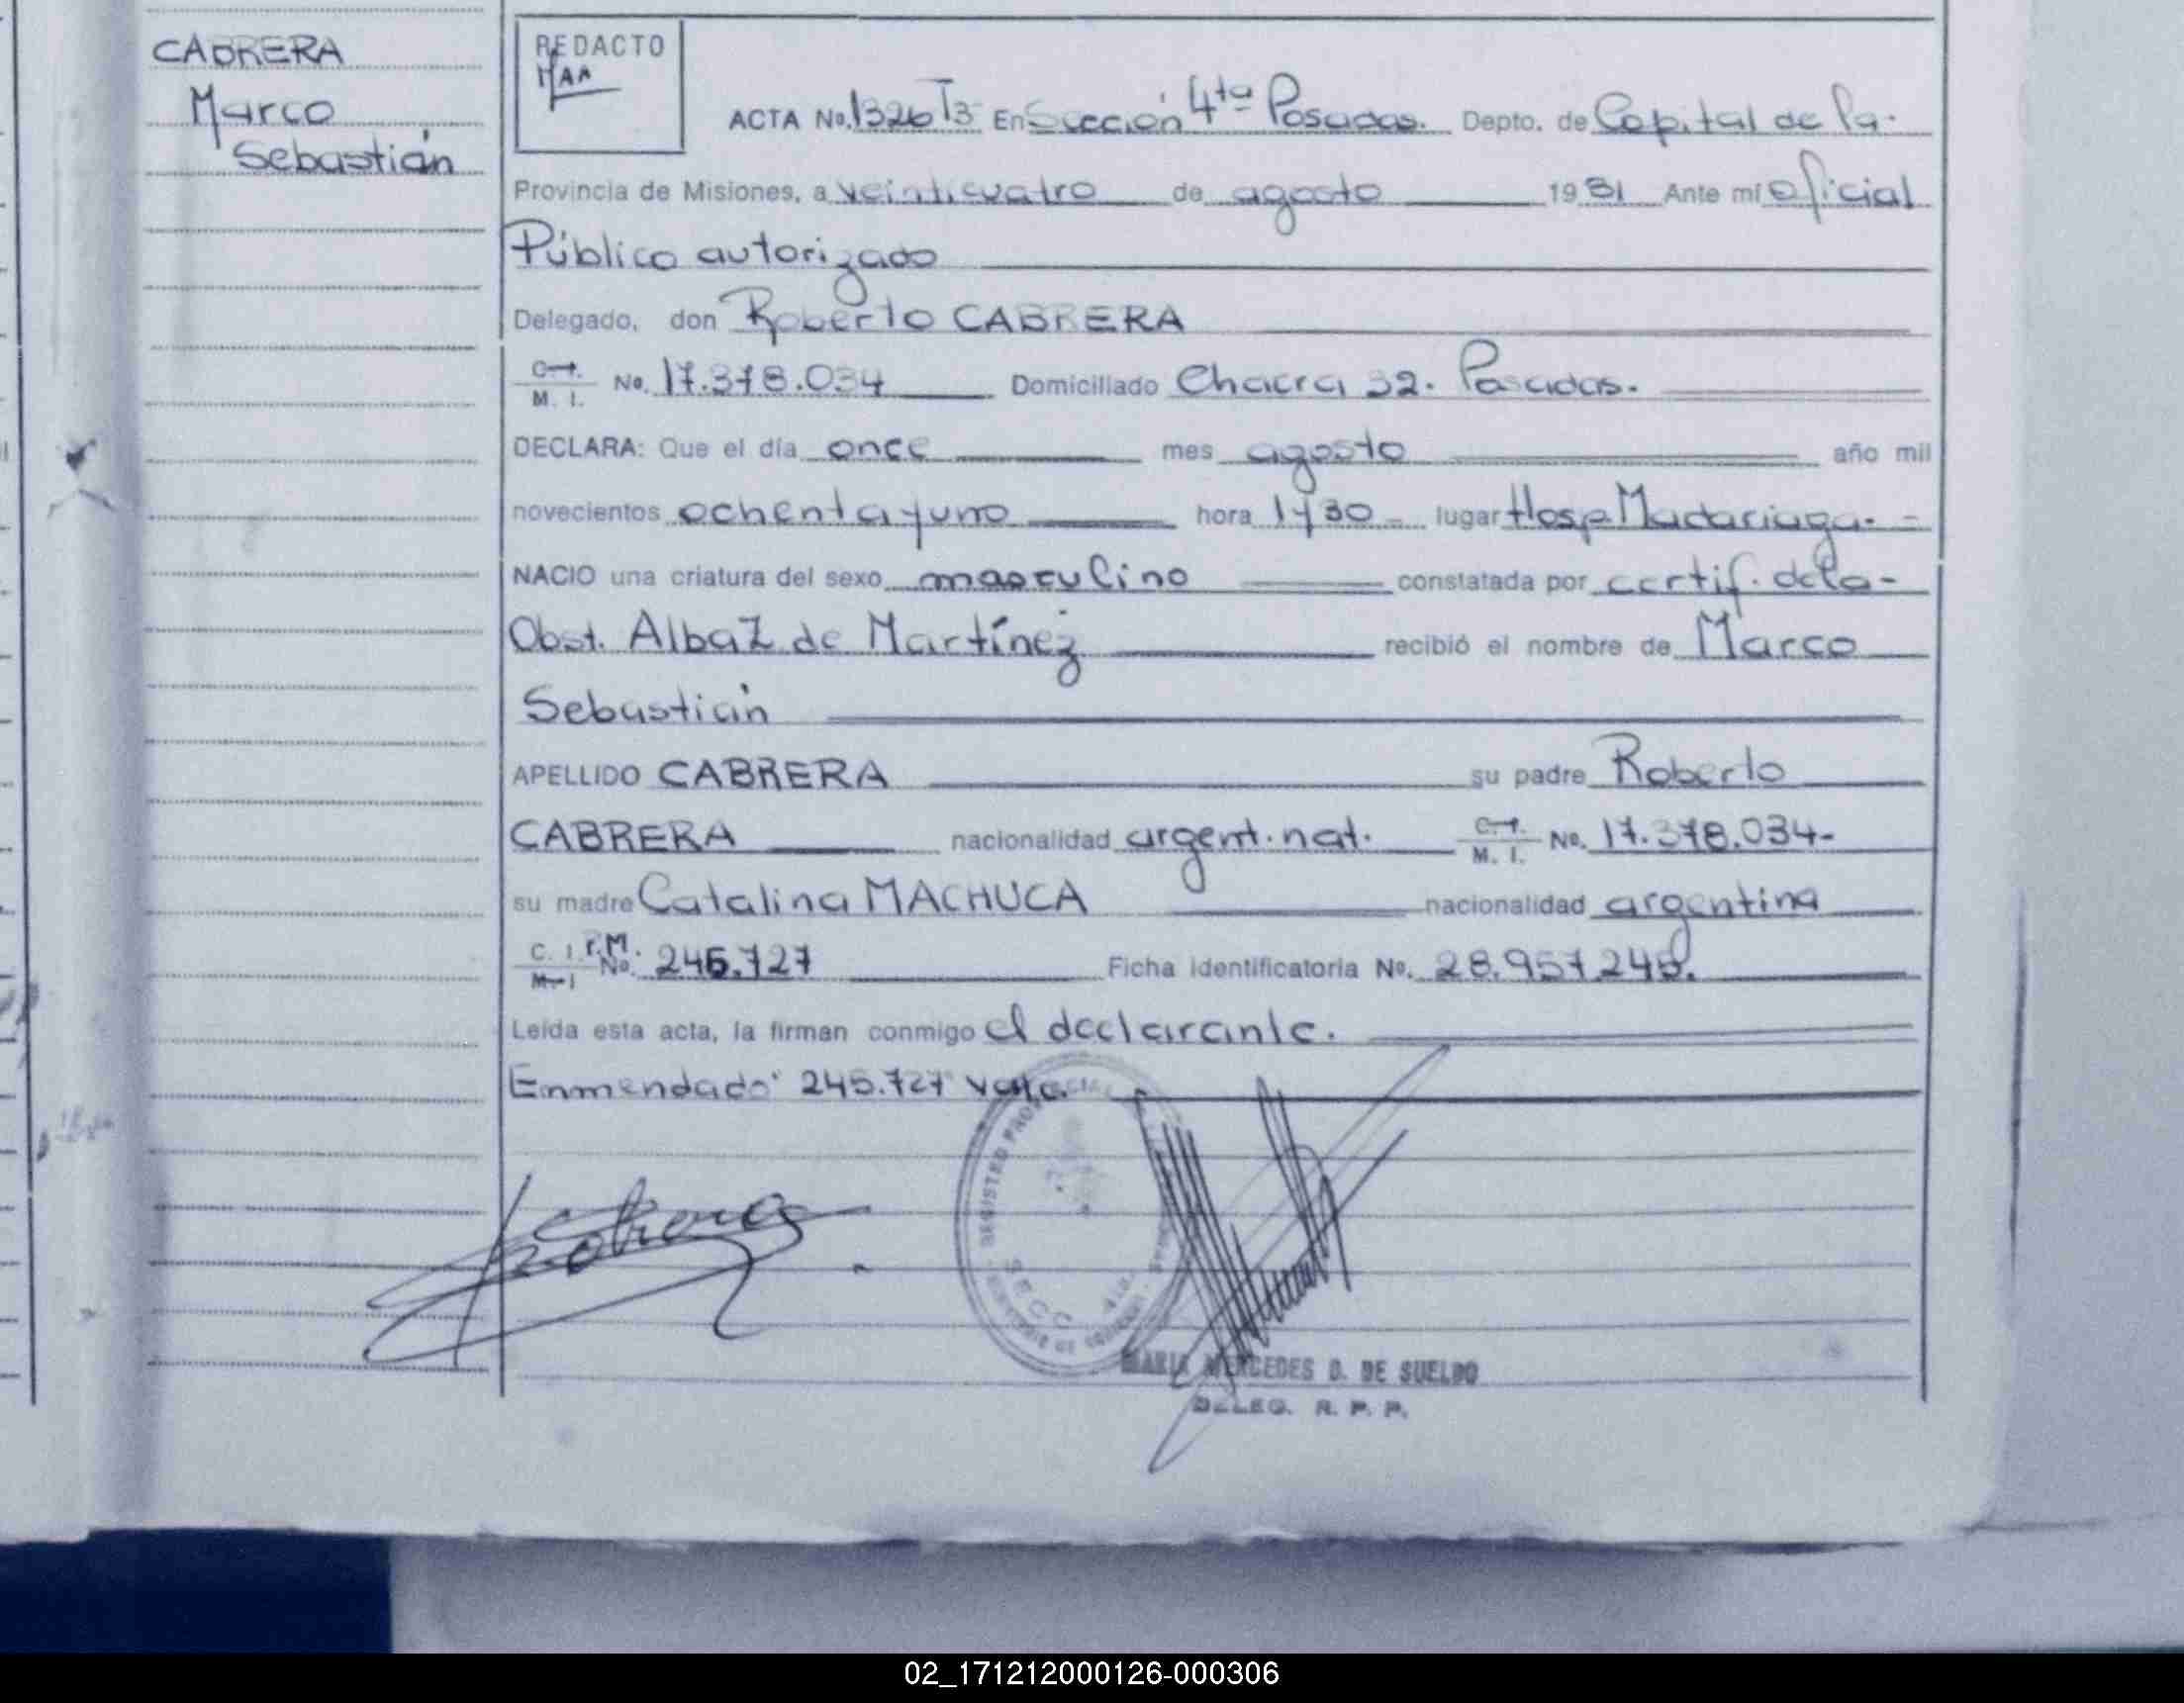 CABRERA
Marco
Sebastián
REDACTO
ACTA No. 1326 T3 En Sección 4ta Posadas. Depto. de Capital de la.
Provincia de Misiones, a veinticuatro de agosto 1981 Ante mí oficial
Público autorizado
Delegado, don Roberto CABRERA
C. I.
M. I. No. 17.378.034 Domiciliado Chacra 32. Posadas.
DECLARA: Que el día once mes agosto año mil
novecientos ochenta y uno hora lugar Hosp Madariaga. -
NACIO una criatura del sexo masculino constatada por certif. dela-
Obst. Alba Z de Martínez recibió el nombre de Marco
Sebastián
APELLIDO CABRERA su padre Roberto
CABRERA nacionalidad argent. nat. C. I.
M. I. No. 17.378.034-
su madre Catalina MACHUCA nacionalidad argentina
C. I. r.M.
M I No. 245.727 Ficha Identificatoria No. 28.957.245.
Leída esta acta, la firman conmigo el declarante.
Enmendado: 245.727 vale.
REGISTRO PROVINCIAL
SECC 4ta.
MARIA MERCEDES D. DE SUELDO
DELEG. R. P. P.
02_171212000126-000306